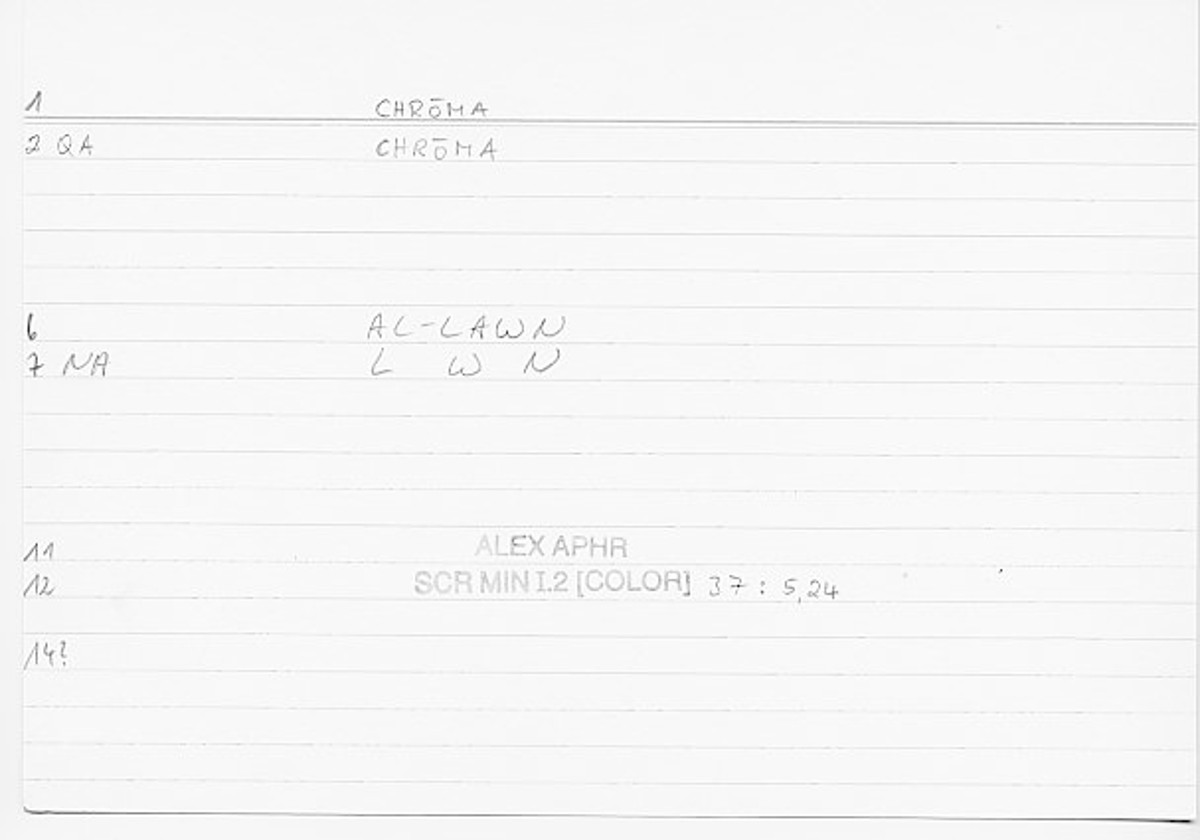 1 CHRŌMA
2 QA CHRŌMA
6 AL-LAWN
7 NA L W N
11 ALEX APHR
12 SCR MIN I.2 [COLOR] 37 : 5,24
14?